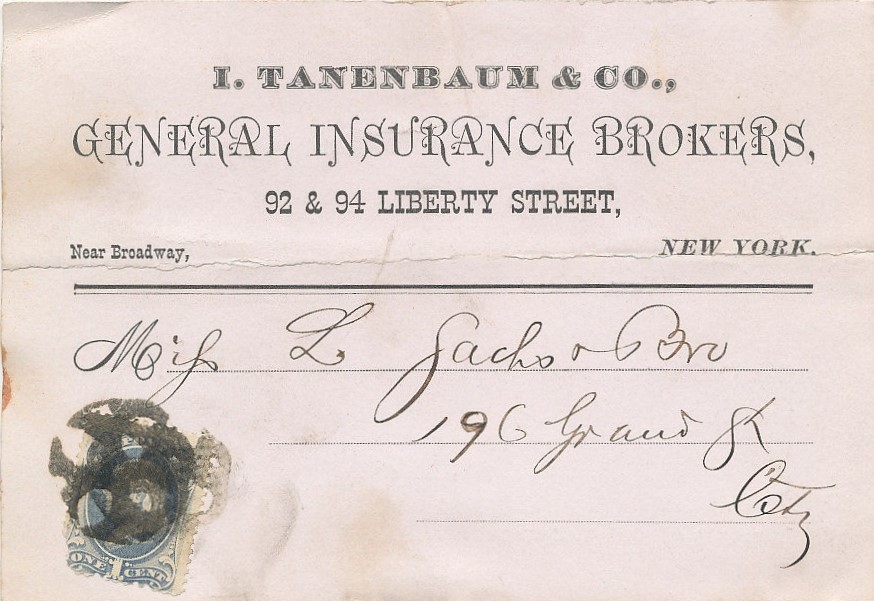 I. TANENBAUM & CO.,
GENERAL INSURANCE BROKERS,
92 & 94 LIBERTY STREET,
Near Broadway, NEW YORK.
L Sachs & Bro
196 Grand St
City
ONE 1 CENT